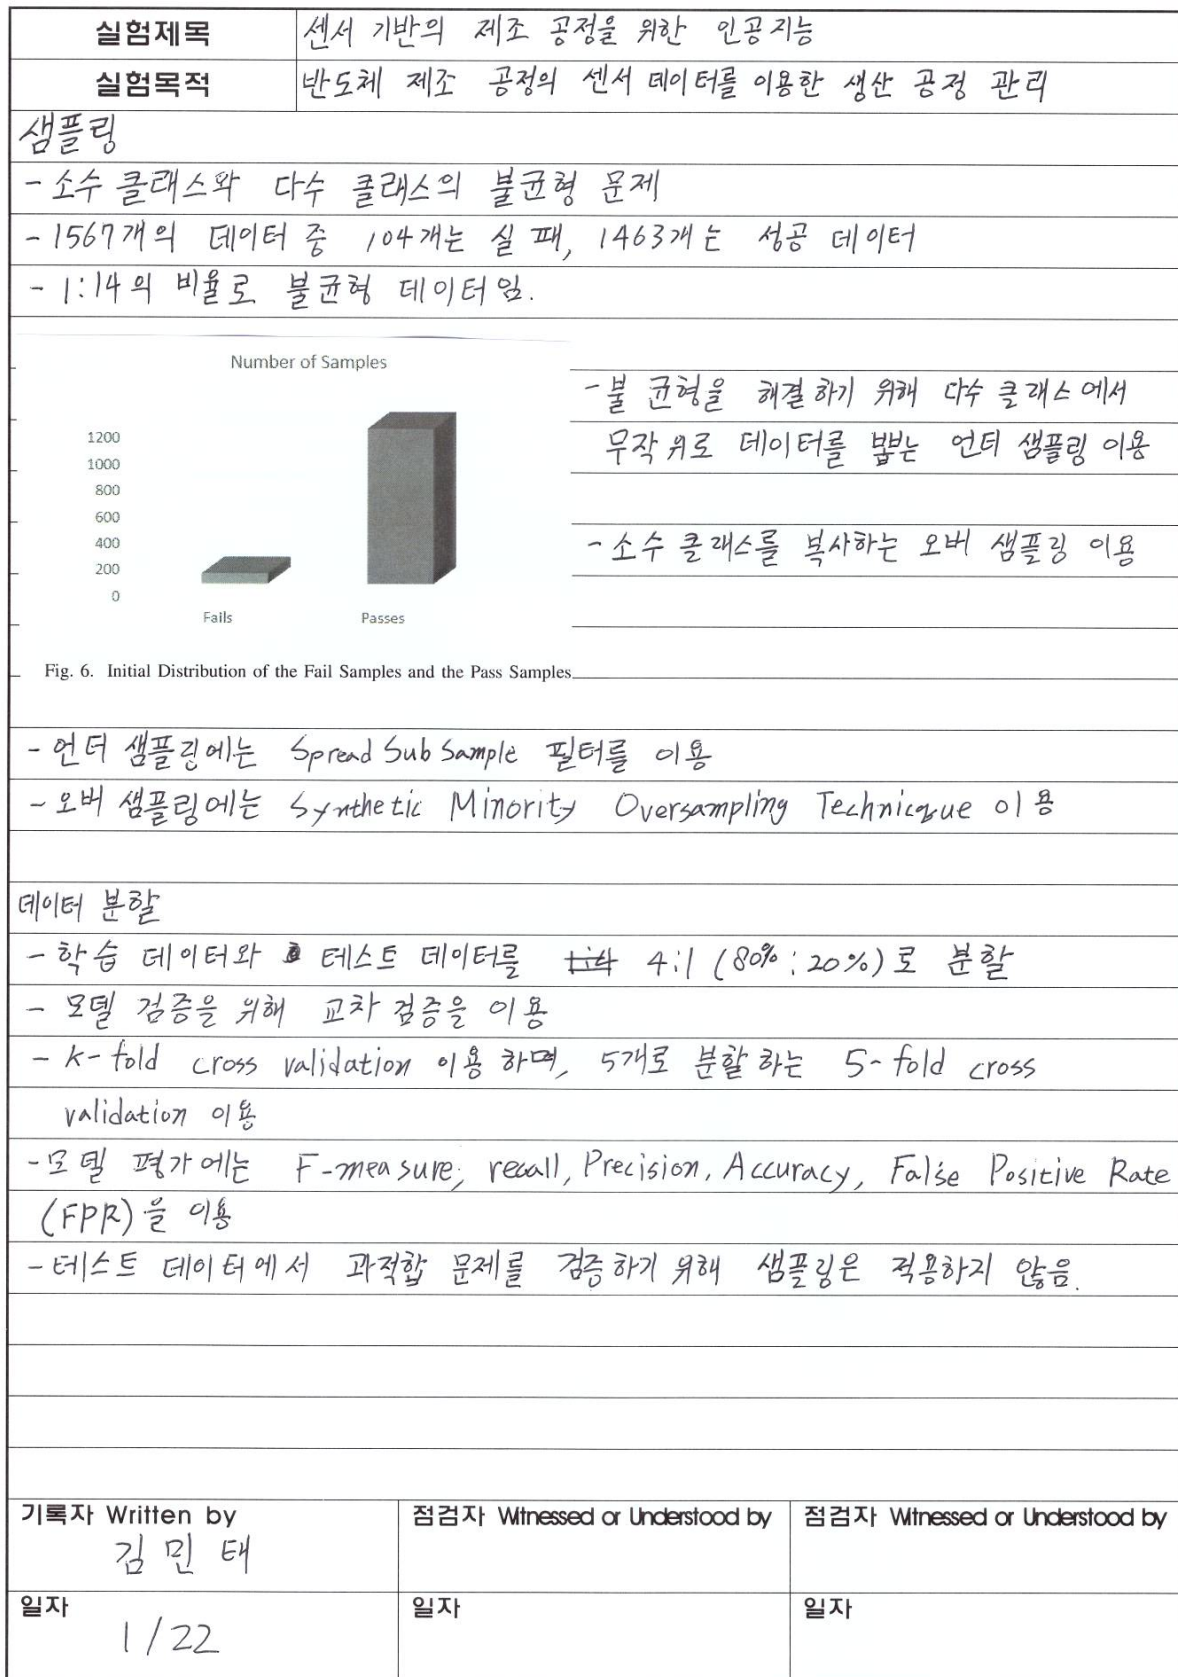 실험제목 센서 기반의 제조 공정을 위한 인공지능
실험목적 반도체 제조 공정의 센서 데이터를 이용한 생산 공정 관리
샘플링
- 소수 클래스와 다수 클래스의 불균형 문제
- 1567개의 데이터 중 104개는 실패, 1463개는 성공 데이터
- 1:14의 비율로 불균형 데이터임.
Number of Samples
1200
1000
800
600
400
200
0
Fails Passes
Fig. 6. Initial Distribution of the Fail Samples and the Pass Samples
- 불균형을 해결하기 위해 다수 클래스에서
무작위로 데이터를 뽑는 언더 샘플링 이용
- 소수 클래스를 복사하는 오버 샘플링 이용
- 언더 샘플링에는 Spread Sub Sample 필터를 이용
- 오버 샘플링에는 Synthetic Minority Oversampling Technicque 이용
데이터 분할
- 학습 데이터와 테스트 데이터를 4:1 (80% : 20%)로 분할
- 모델 검증을 위해 교차 검증을 이용
- k-fold cross validation 이용하며, 5개로 분할하는 5-fold cross
validation 이용
- 모델 평가에는 F-measure, recall, Precision, Accuracy, False Positive Rate
(FPR)을 이용
- 테스트 데이터에서 과적합 문제를 검증하기 위해 샘플링은 적용하지 않음.
기록자 Written by 점검자 Witnessed or Understood by 점검자 Witnessed or Understood by
김민태
일자 일자 일자
1/22